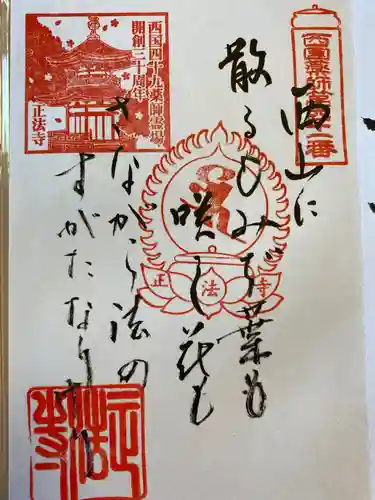 西国薬師第四十一番
西山に
散るもみぢ葉も
咲し花も
さながら法の
すがたなりけり
西国四十九薬師霊場
開創三十周年
正法寺
正法寺
正法寺